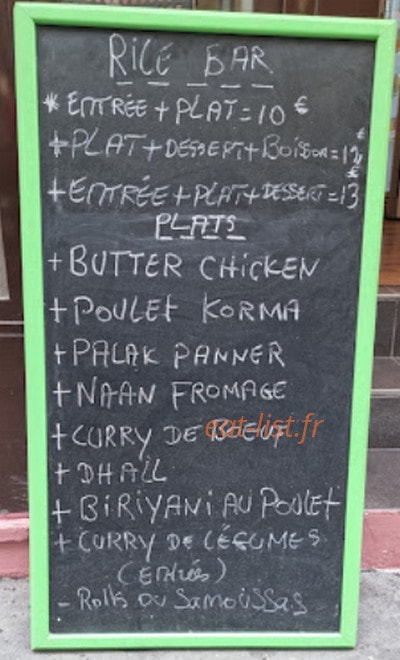 RICE BAR
* ENTRÉE + PLAT = 10 €
+ PLAT + DESSERT + BOISSON = 12 €
+ ENTRÉE + PLAT + DESSERT = 13 €
PLATS
+ BUTTER CHICKEN
+ POULET KORMA
+ PALAK PANNER
+ NAAN FROMAGE
+ CURRY DE BŒUF
eat-list.fr
+ DHAIL
+ BIRIYANI AU POULET
+ CURRY DE LÉGUMES
(Entrées)
- Rolls ou Samoussas